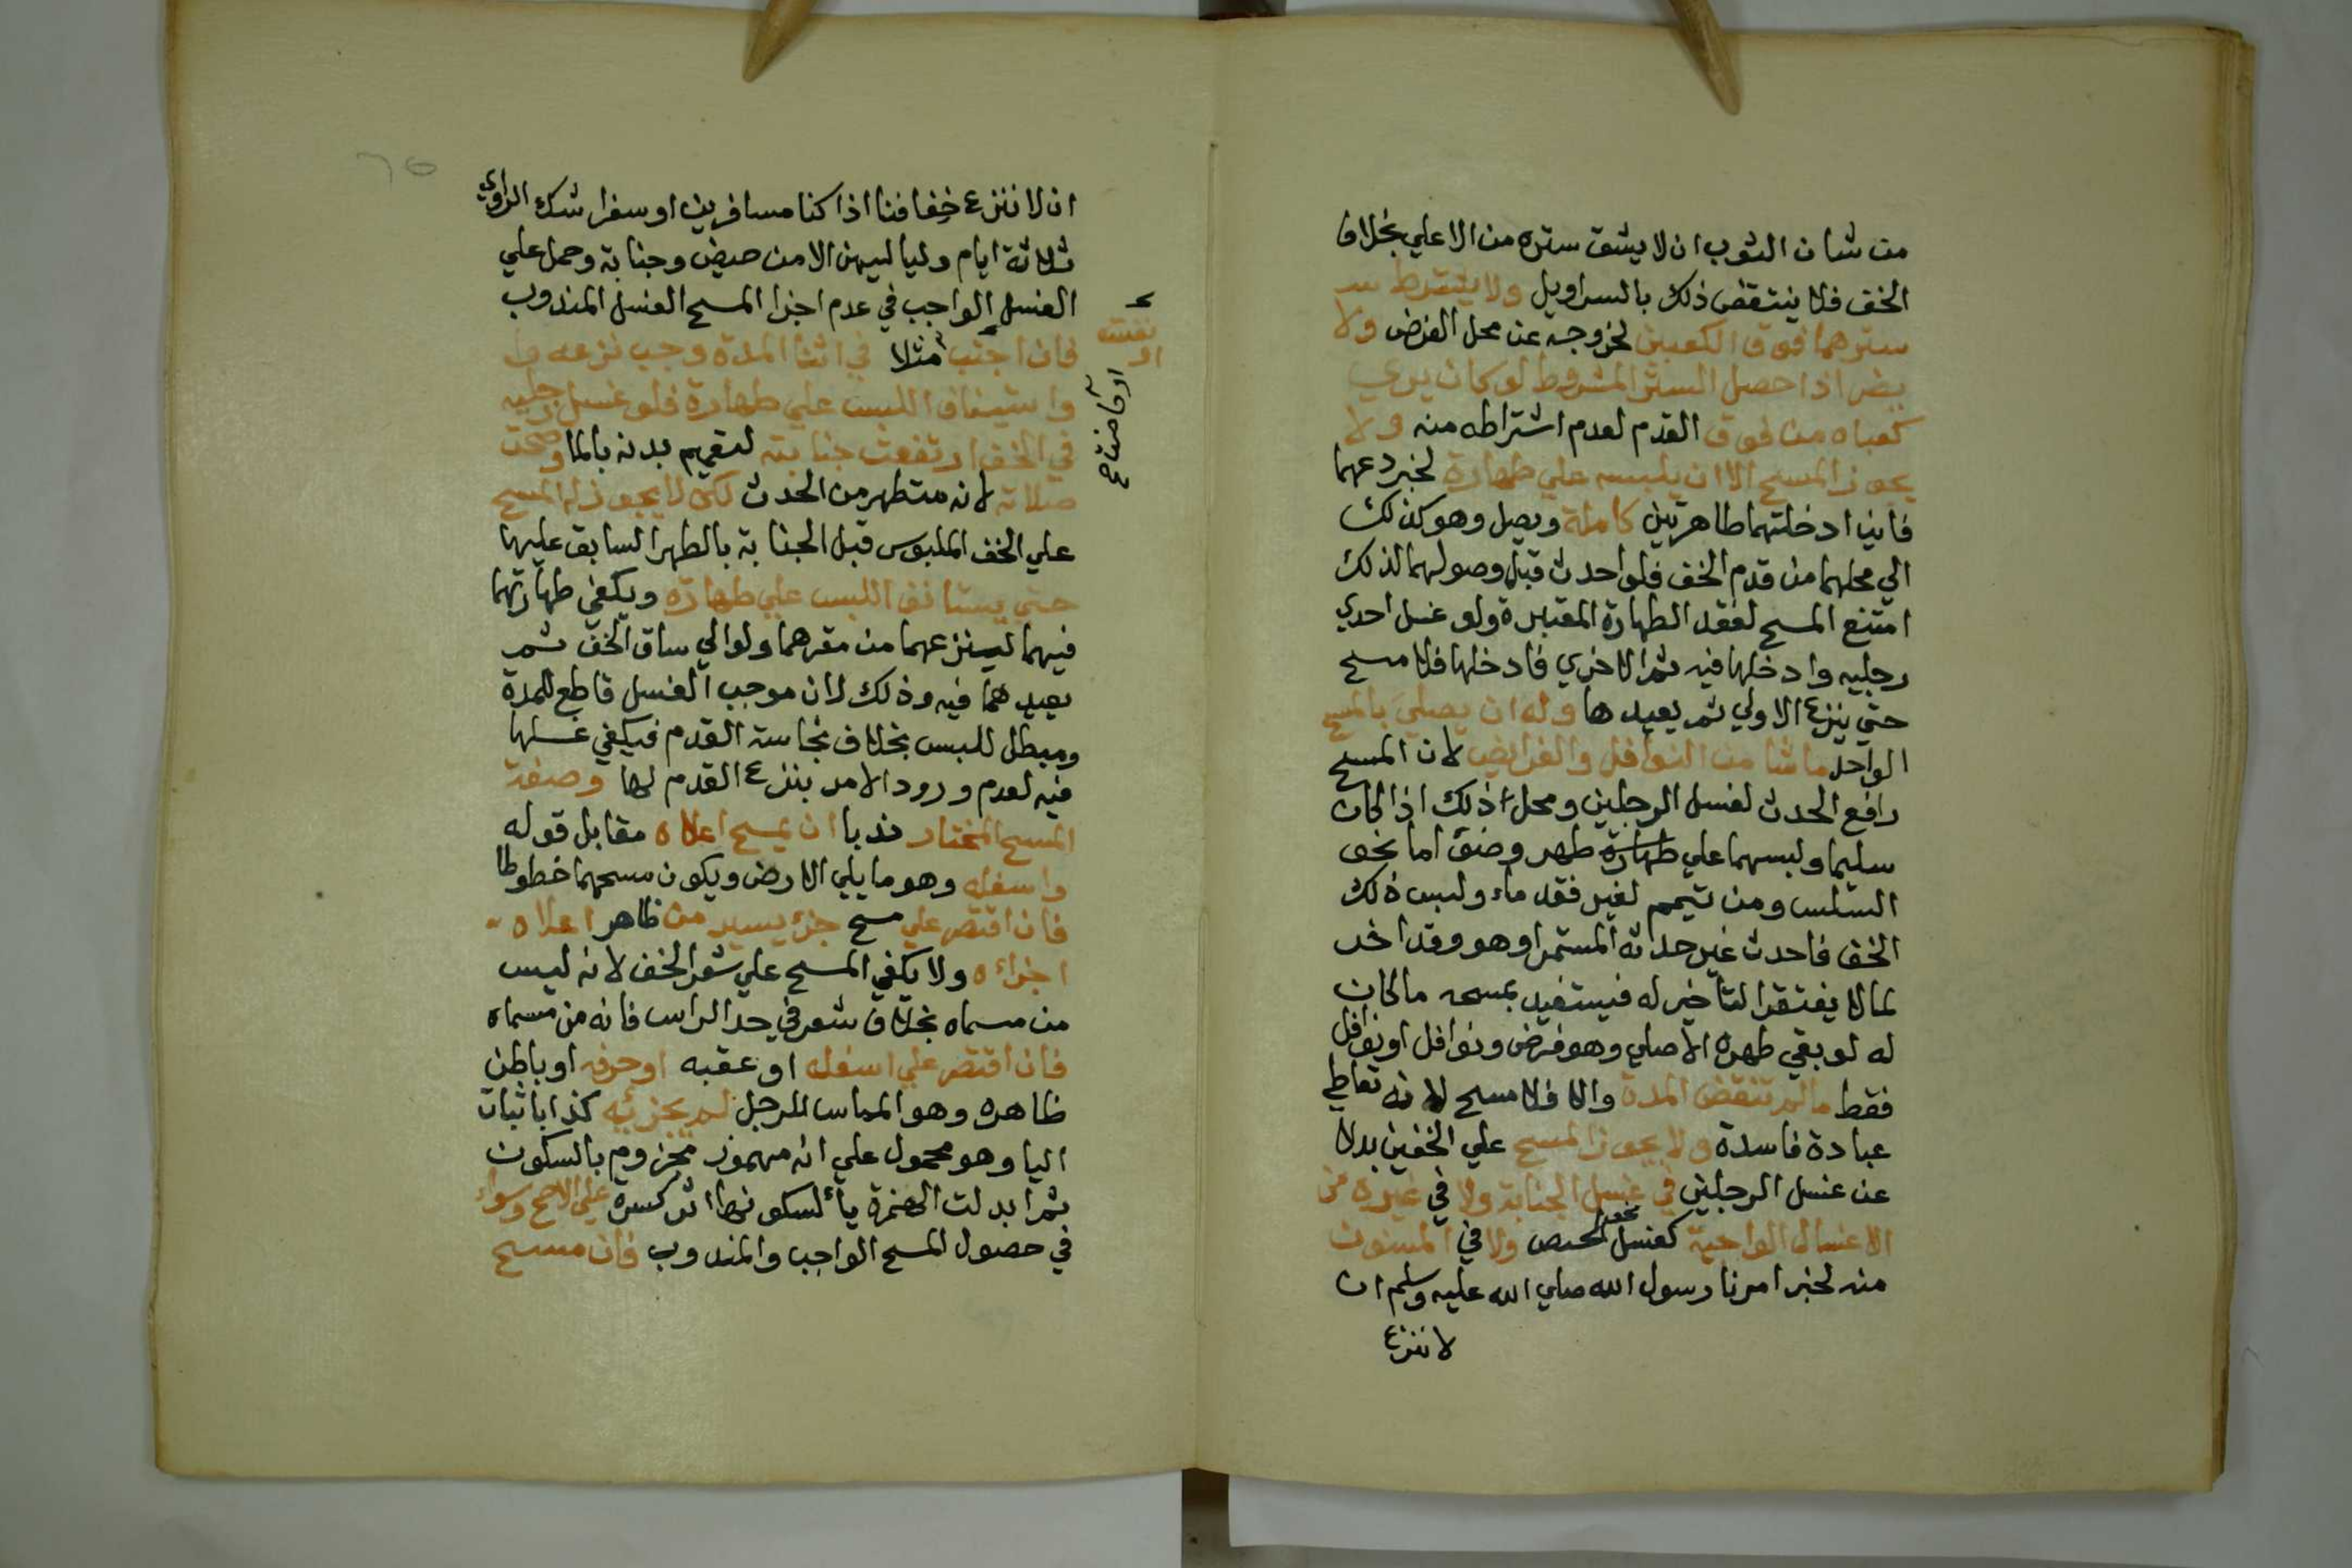 من شان الثوب ان لا يشق ستره من الاعلي بخلاف
الخف فلا ينتقض ذلك بالسراويل ولا يشترط
سترهما فوق الكعبين لخروجه عن محل الفرض ولا
يضر اذا حصل الستر المشروط لو كان يري
كعباه من فوق القدم لعدم اشتراطه منه ولا
يجوز المسح الا ان يلبسه علي طهارة لخبر دعهما
فاني ادخلتهما طاهرتين كاملة ويصل وهو كذلك
الي محلهما من قدم الخف فلو احدث قبل وصولهما لذلك
امتنع المسح لفقد الطهارة المعتبرة ولو غسل احدي
رجليه وادخلها فيه ثم الاخري فادخلها فلا مسح
حتي ينزع الاولي ثم يعيدها وله ان يصلي بالمسح
الواحد ما شا من النوافل والفرايض لان المسح
رافع الحدث لغسل الرجلين ومحل ذلك اذا كان
سليما ولبسهما علي طهارة طهر وضوء اما نحو
السلس ومن تيمم لغير فقد ماء ولبس ذلك
الخف فاحدث غير حدثه المستمر او هو وقد اخر
لما لا يفتقر التأخير له فيستفيد بمسحه ما كان
له لو بقي طهره الاصلي وهو فرض ونوافل او نوافل
فقط ما لم تنقض المدة والا فلا مسح لانه تعاطي
عبادة فاسدة ولا يجوز المسح علي الخفين بدلا
عن غسل الرجلين في غسل الجنابة ولا في غيره من
الاغسال الواجبة كغسل نحو الحيض ولا في المسنون
منه لخبر امرنا رسول الله صلي الله عليه وسلم ان
لا ننزع
ان لا ننزع خفافنا اذا كنا مسافرين او سفرا شك الراوي
ثلاثة ايام ولياليهن الا من حيض وجنابة وحمل علي
الغسل الواجب في عدم اجزا المسح الغسل المندوب
فان اجنب مثلا في اثنا المدة وجب نزعه
واستيناف اللبس علي طهارة فلو غسل رجليه
في الخف ارتفعت جنابته لتعميم بدنه بالما وصحت
صلاته لانه متطهر من الحدث لكن لا يجوز له المسح
علي الخف الملبوس قبل الجنابة بالطهر السابق عليها
حتي يستانف اللبس علي طهارة ويكفي طهارتهما
فيهما لينزعهما من مقرهما ولو الي ساق الخف ثم
يعيدهما فيه وذلك لان موجب الغسل قاطع للمدة
ومبطل للبس بخلاف نجاسة القدم فيكفي غسلها
فيه لعدم ورود الامر بنزع القدم لها وصفة
المسح المختار ندبا ان يمسح اعلاه مقابل قوله
واسفله وهو ما يلي الارض ويكون مسحهما خطوطا
فان اقتصر علي مسح جزء يسير من ظاهر اعلاه
اجزاءه ولا يكفي المسح علي شعر الخف لانه ليس
من مسماه بخلاف شعر في حد الراس فانه من مسماه
فان اقتصر علي اسفله او عقبه او حرفه او باطن
ظاهره وهو المماس للرجل لم يجزئيه كذا باثبات
اليا وهو محمول علي انه مهموز مجزوم بالسكون
ثم ابدلت الهمزة يأ لسكونها اثر كسرة علي الاصح وسواء
في حصول المسح الواجب والمندوب فان مسح
نفست
او
او حاضت